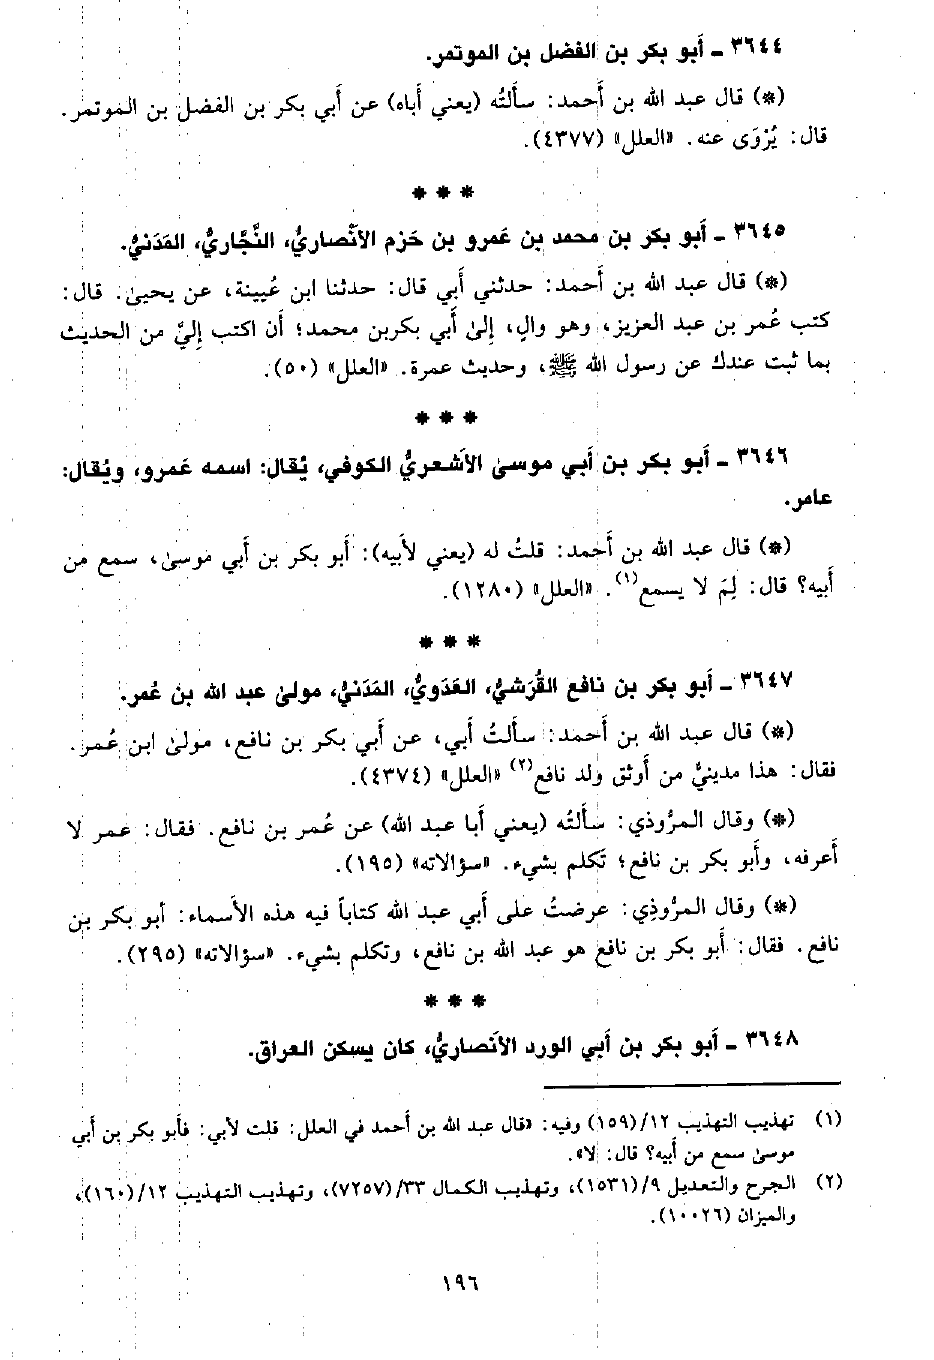 ٣٦٤٤ ـ أبو بكر بن الفضل بن الموتمر.
(*) قال عبد الله بن أحمد: سألته (يعني أباه) عن أبي بكر بن الفضل بن الموتمر.
قال: يُرْوَى عنه. «العلل» (٤٣٧٧).
* * *
٣٦٤٥ ـ أبو بكر بن محمد بن عَمرو بن حَزم الأنْصاريُّ، النَّجَّاريُّ، المَدَنيُّ.
(*) قال عبد الله بن أحمد: حدثني أبي قال: حدثنا ابن عُيينة، عن يحيىٰ. قال:
كتب عُمر بن عبد العزيز، وهو والٍ، إلىٰ أبي بكربن محمد؛ أن اكتب إليَّ من الحديث
بما ثبت عندك عن رسول الله ﷺ، وحديث عمرة. «العلل» (٥٠).
* * *
٣٦٤٦ ـ أبو بكر بن أبي موسىٰ الأشعريُّ الكوفي، يُقال: اسمه عَمرو، ويُقال:
عامر.
(*) قال عبد الله بن أحمد: قلتُ له (يعني لأبيه): أبو بكر بن أبي موسىٰ، سمع من
أبيه؟ قال: لِمَ لا يسمع(١). «العلل» (١٢٨٠).
* * *
٣٦٤٧ ـ أبو بكر بن نافع القُرَشيُّ، العَدَويُّ، المَدَنيُّ، مولىٰ عبد الله بن عُمر.
(*) قال عبد الله بن أحمد: سألتُ أبي، عن أبي بكر بن نافع، مولىٰ ابن عُمر.
فقال: هذا مدينيٌّ من أوثق ولد نافع(٢) «العلل» (٤٣٧٤).
(*) وقال المرُّوذي: سألته (يعني أبا عبد الله) عن عُمر بن نافع. فقال: عمر لا
أعرفه، وأبو بكر بن نافع؛ تَكلم بشيء. «سؤالاته» (١٩٥).
(*) وقال المرُّوذِي: عرضتُ على أبي عبد الله كتاباً فيه هذه الأسماء: أبو بكر بن
نافع. فقال: أبو بكر بن نافع هو عبد الله بن نافع، وتكلم بشيء. «سؤالاته» (٢٩٥).
* * *
٣٦٤٨ ـ أبو بكر بن أبي الورد الأنصاريُّ، كان يسكن العراق.
(١) تهذيب التهذيب ١٢/(١٥٩) وفيه: «قال عبد الله بن أحمد في العلل: قلت لأبي: فأبو بكر بن أبي
موسىٰ سمع من أبيه؟ قال: لا».
(٢) الجرح والتعديل ٩/(١٥٣١)، وتهذيب الكمال ٣٣/(٧٢٥٧)، وتهذيب التهذيب ١٢/(١٦٠)،
والميزان (١٠٠٢٦).
١٩٦